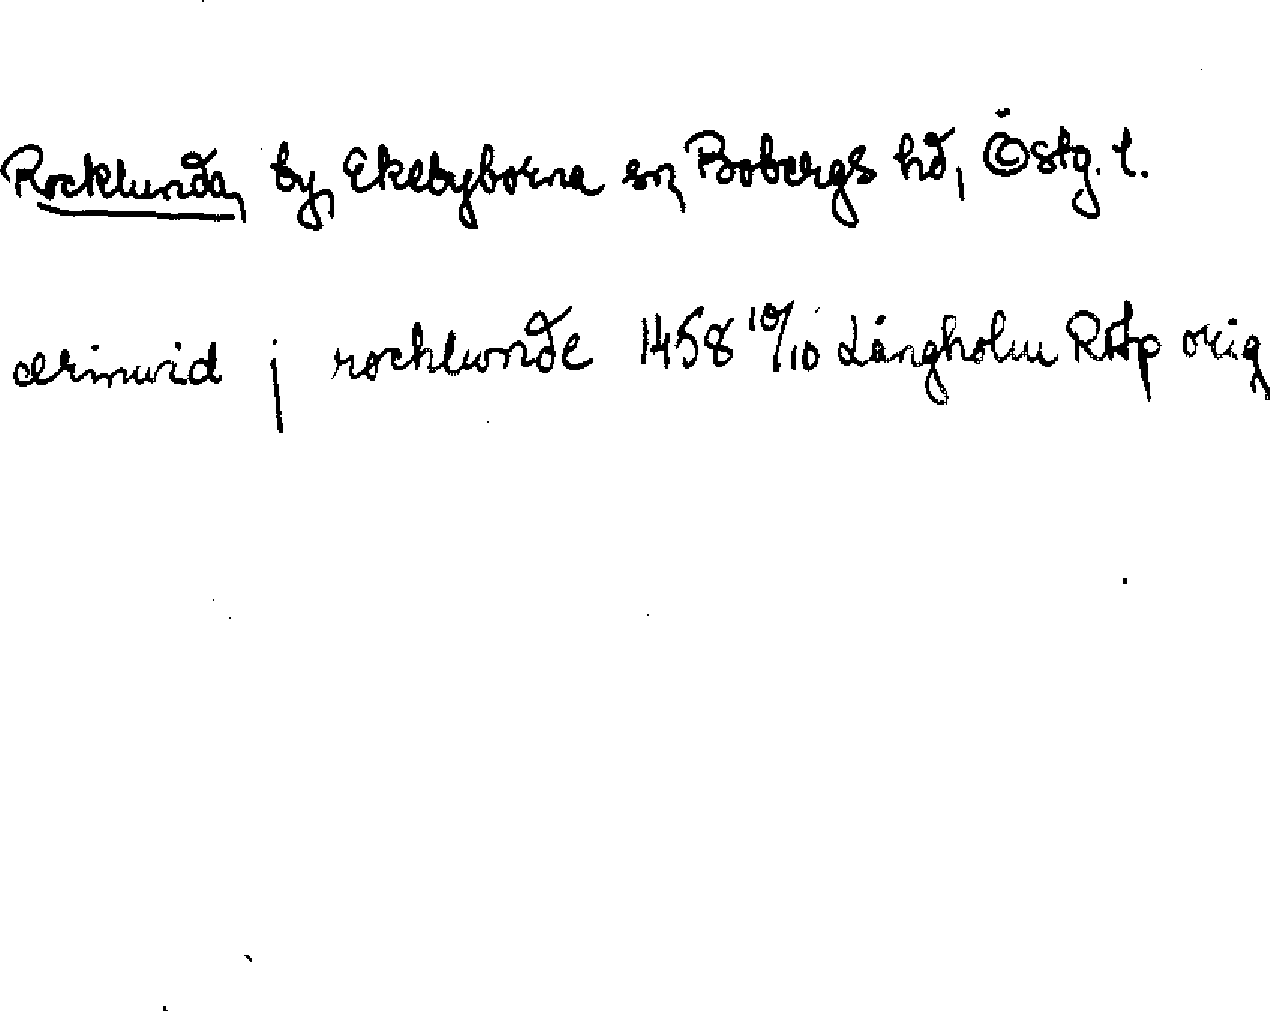 Rocklunda, by, Ekebyborna sn, Bobergs hd, Östg. l.
ærinuid j rochlwnde 1458 10/10 Långholm RAp orig